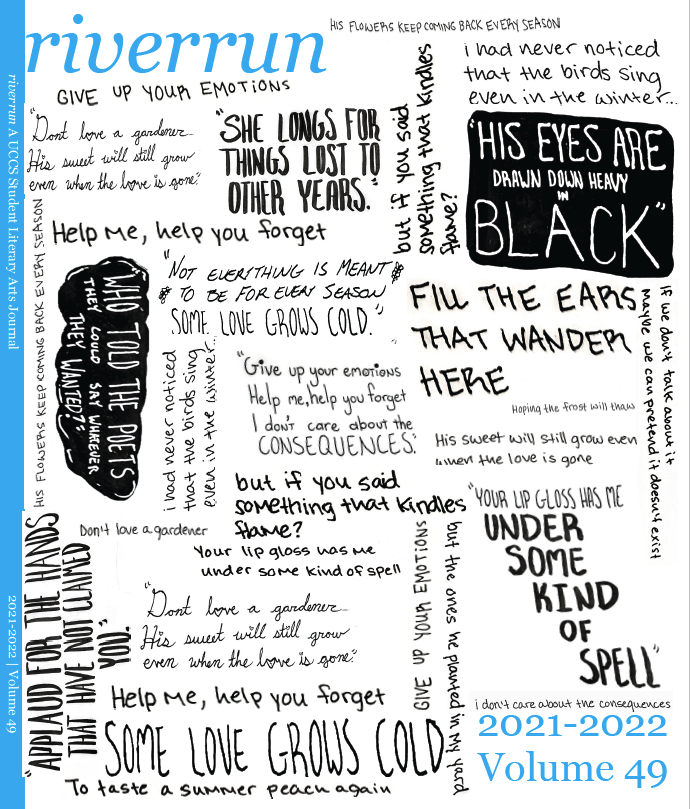 riverrun
HIS FLOWERS KEEP COMING BACK EVERY SEASON
GIVE UP YOUR EMOTIONS
"Dont love a gardener
His sweet will still grow
even when the love is gone."
"SHE LONGS FOR
THINGS LOST TO
OTHER YEARS."
but if you said
something that kindles
flame?
i had never noticed
that the birds sing
even in the winter...
"HIS EYES ARE
DRAWN DOWN HEAVY
IN
BLACK"
riverrun A UCCS Student Literary Arts Journal
2021-2022 | Volume 49
HIS FLOWERS KEEP COMING BACK EVERY SEASON
Help me, help you forget
"WHO TOLD THE POETS
THEY COULD SAY WHATEVER
THEY WANTED?"
"NOT EVERYTHING IS MEANT
TO BE FOR EVERY SEASON
SOME LOVE GROWS COLD."
i had never noticed
that the birds sing
even in the winter...
"Give up your emotions
Help me, help you forget
I don't care about the
CONSEQUENCES."
FILL THE EARS
THAT WANDER
HERE
If we don't talk about it
maybe we can pretend it doesn't exist
Hoping the frost will thaw
His sweet will still grow even
when the love is gone
but if you said
something that kindles
flame?
"YOUR LIP GLOSS HAS ME
UNDER
SOME
KIND
OF
SPELL"
"APPLAUD FOR THE HANDS
THAT HAVE NOT CLAIMED
YOU."
Don't love a gardener
Your lip gloss has me
under some kind of spell
"Dont love a gardener
His sweet will still grow
even when the love is gone."
GIVE UP YOUR EMOTIONS
but the ones he planted in my yard
Help me, help you forget
SOME LOVE GROWS COLD
To taste a summer peach again
i don't care about the consequences
2021-2022
Volume 49